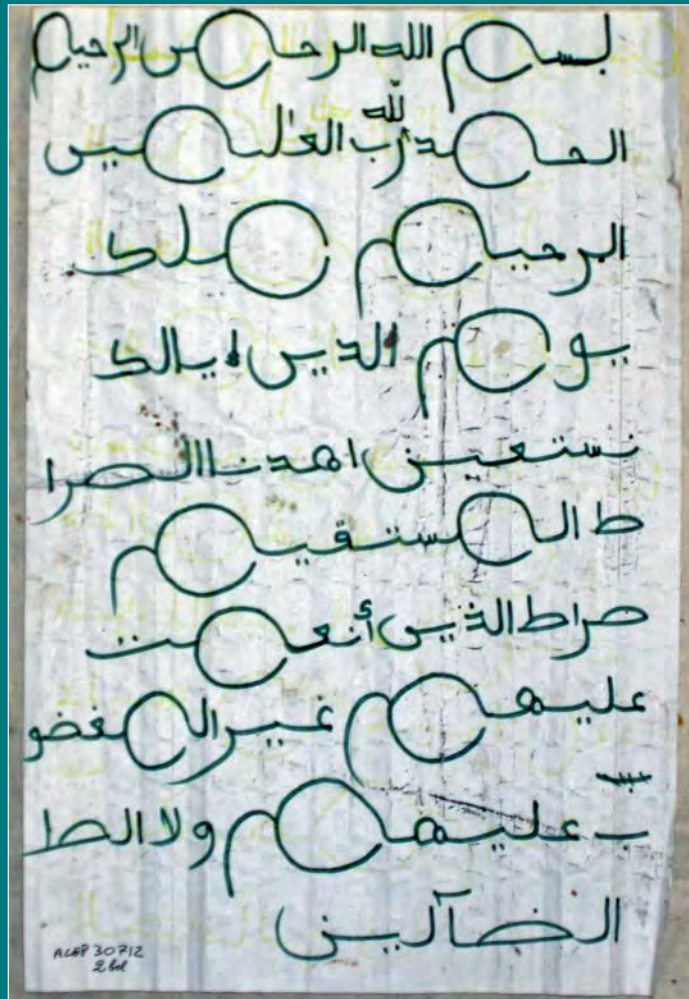 بسم الله الرحمن الرحيم
الحمد لله رب العلمين
الرحيم ملك
يوم الدين اياك
نستعين اهدنا الصرا
ط المستقيم
صراط الذين أنعمت
عليهم غير المغضو
ب عليهم ولا الط
الضآلين
ACEP 30712
2 bd